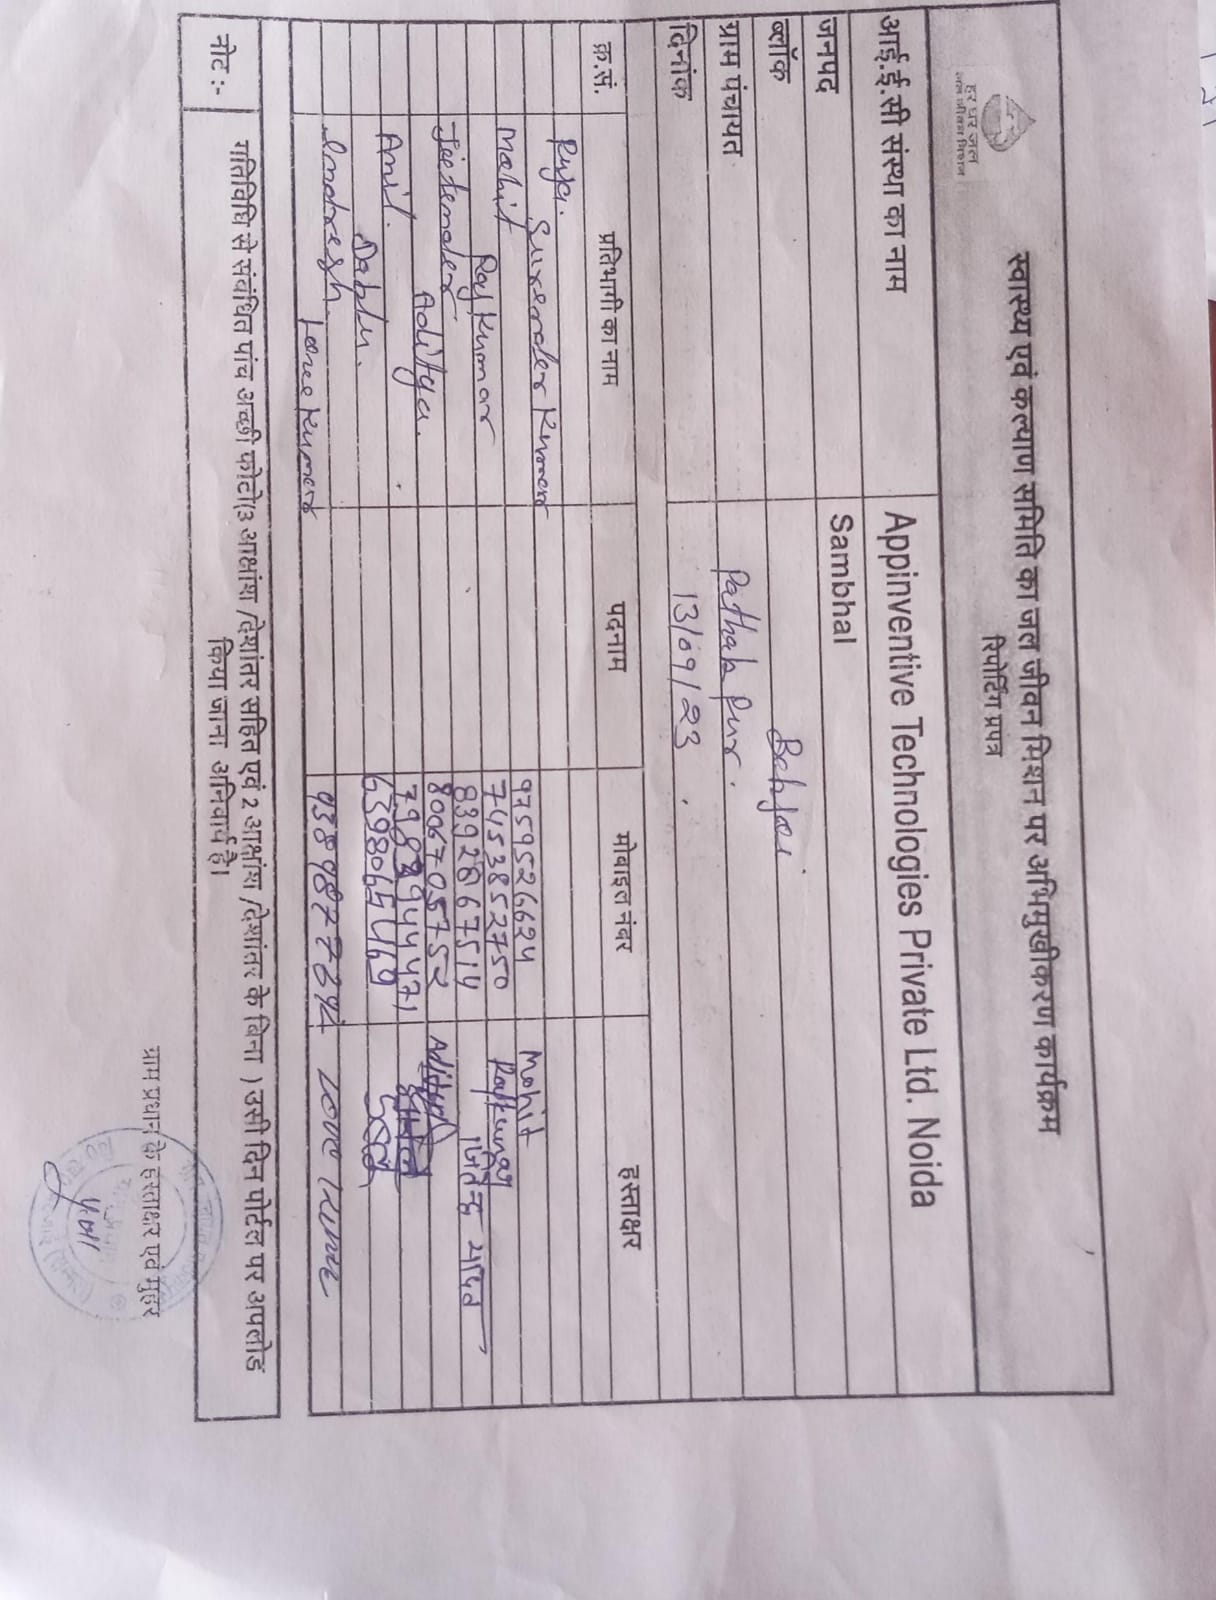 हर घर जल
जल जीवन मिशन
स्वास्थ्य एवं कल्याण समिति का जल जीवन मिशन पर अभिमुखीकरण कार्यक्रम
रिपोर्टिंग प्रपत्र
आई.ई.सी संस्था का नाम Appinventive Technologies Private Ltd. Noida
जनपद Sambhal
ब्लॉक Behjoi
ग्राम पंचायत Pathakpur.
दिनांक 13/09/23
क्र.सं. प्रतिभागी का नाम पदनाम मोबाइल नंबर हस्ताक्षर
Puja.
Surender Kumar
Mohit 9759526624 Mohit
Raj Kumar 7453852750 Rajkumar
Jeetender 8392867514 जितेन्द्र
Aditya. 8006705752 Aditya
Anil.
Dablu. 6398065469
Indresh.
Love Kumar Love Kumar
नोट :- गतिविधि से संबंधित पांच अच्छी फोटो(3 आक्षांश /देशांतर सहित एवं 2 आक्षांश /देशांतर के बिना ) उसी दिन पोर्टल पर अपलोड
किया जाना अनिवार्य है।
ग्राम प्रधान के हस्ताक्षर एवं मुहर